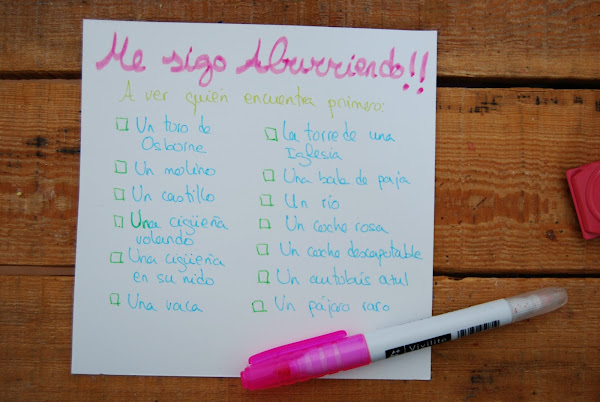 Me sigo Aburriendo!!
A ver quién encuentra primero:
Un toro de
Osborne
Un molino
Un castillo
Una cigüeña
volando
Una cigüeña
en su nido
Una vaca
La torre de una
Iglesia
Una bala de paja
Un río
Un coche rosa
Un coche descapotable
Un autobús azul
Un pájaro raro